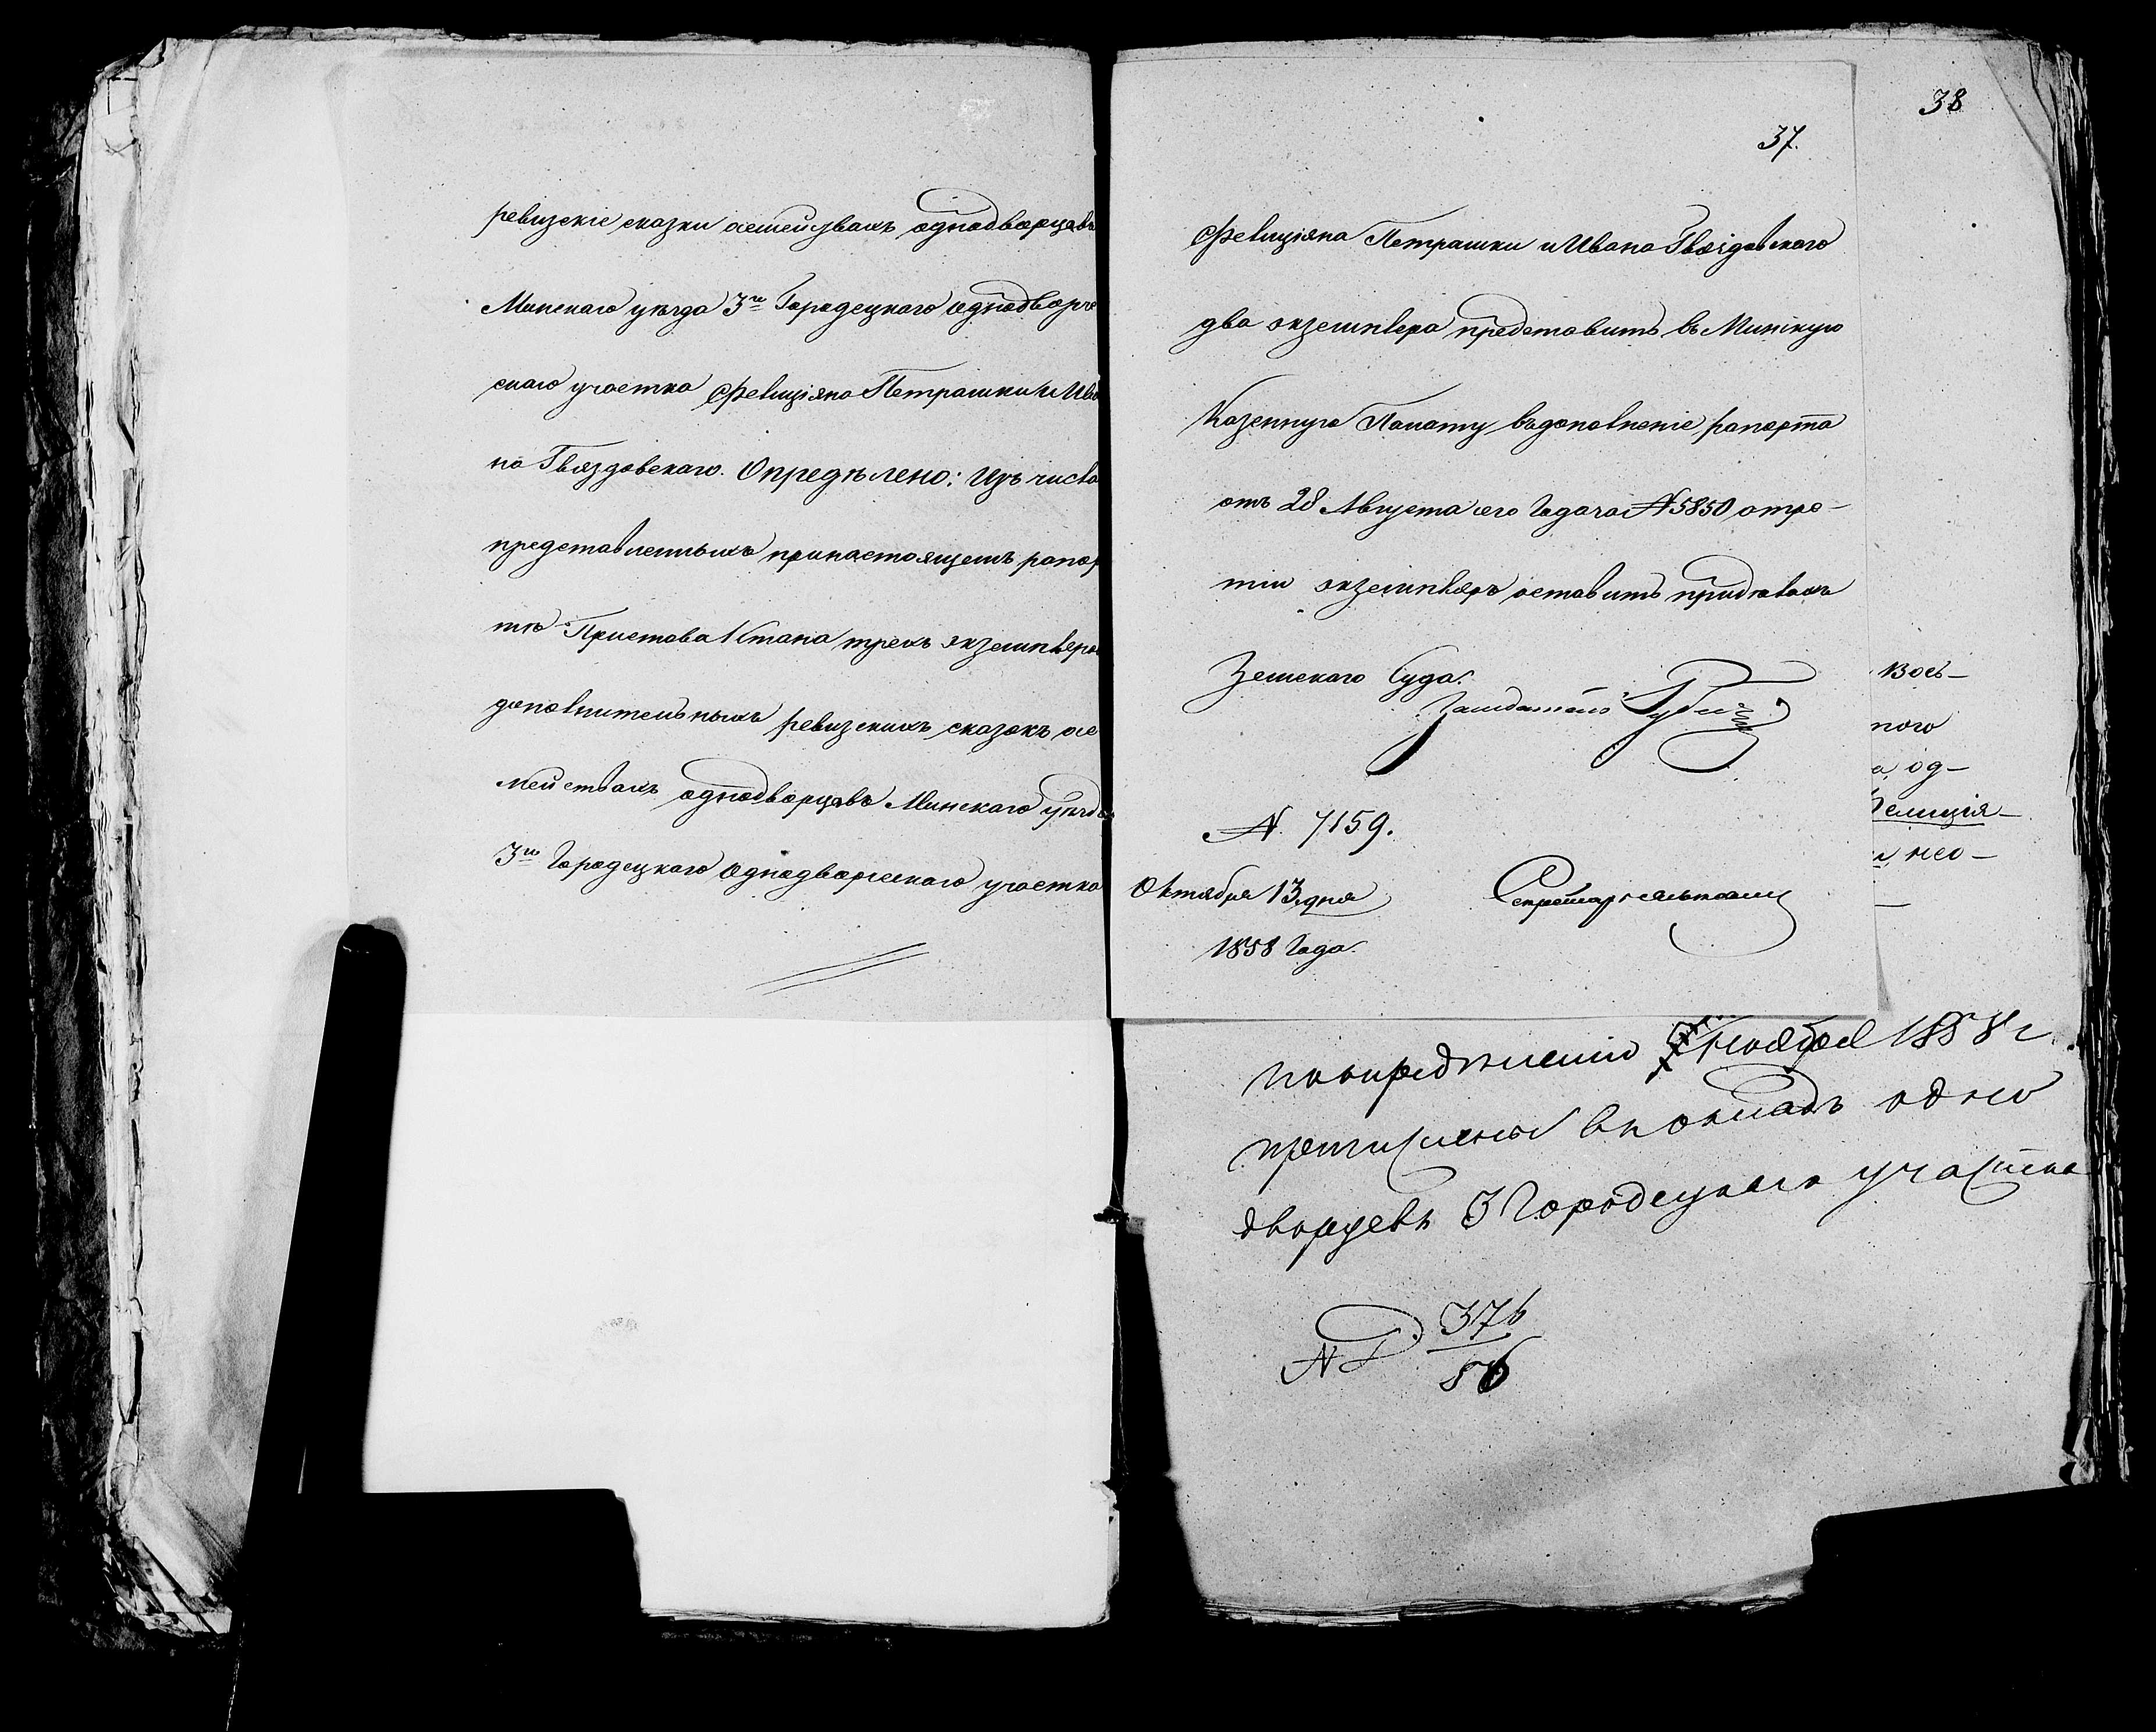 ревизскіе сказки осемействахъ однодворцовъ
Минскаго уѣзда 3го Городецкаго однодворче
скаго участка Фелиціяна Петрашки и Ива
на Гвяздовскаго. Опредѣлено: Изъ числа
представленныхъ принастоящемъ рапор
тѣ Пристава 1 Стана трехъ экземпляров
дополнительныхъ ревизскихъ сказокъ осе
мействахъ однодворцовъ Минскаго уѣзда
3го Городецкаго Однодворческаго участка
38
37.
Фелиціяна Петрашки и Ивана Гвяздовскаго
два экземпляра представить въ Минскую
Казенную Палату въдополненіе рапорта
отъ 28 Августа сего Года за № 5850 а тре-
тій экземпляръ оставить придѣлахъ
Земскаго Суда.
Засѣдатель
№ 7159.
Октября 13 дня
Секретарь
1858 Года.
вось-
ного
а од-
Фелиція-
нео-
поопредѣленію Ноября 1858 г
причислены въ окладъ одно
дворцевъ 3 Городецкаго участка
№ Р. 376
56